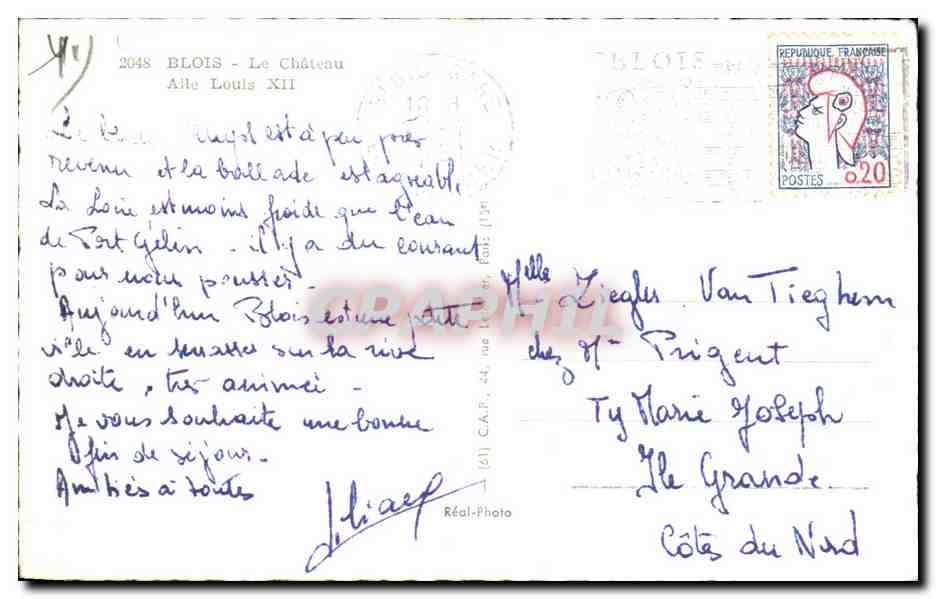 2048 BLOIS - Le Château
Aile Louis XII
BLOIS
REPUBLIQUE FRANÇAISE
POSTES 0.20
est à peu près
revenu et la ballade est agréabl.
La Loire est moins froide que l'eau
de Port Gélin - il y a du courant
pour nous pousser.
Aujourd'hui Blois est une petite
ville en terrasses sur la rive
droite, très animée -
Je vous souhaite une bonne
fin de séjour.
Amitiés à toutes
Melle Ziegler Van Tieghem
chez Mme Prigent
Ty Marie Joseph
Ile Grande
Côtes du Nord
(61) C.A.P., 44, rue
Paris
Réal-Photo
CRAPHIL